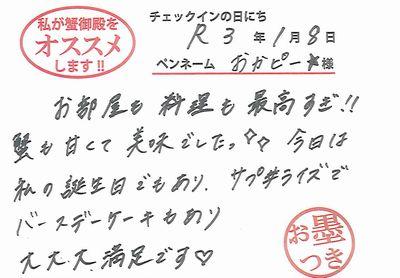 私が蟹御殿を
オススメ
します!!
チェックインの日にち
R3年1月8日
ペンネーム おかピー★様
お部屋も料理も最高すぎ!!
蟹も甘くて美味でしたっ✧✧ 今日は
私の誕生日でもあり、サプライズで
バースデーケーキもあり
大大大満足です♡
お墨
つき